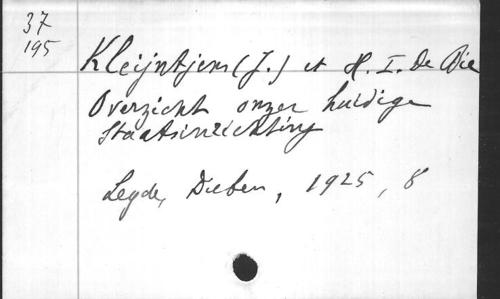 37
195
Kleijntjens (J.) et H. I. De Bie
Overzicht onzer huidige
Staatsinrichting
Leyde, Dieben, 1925, 8